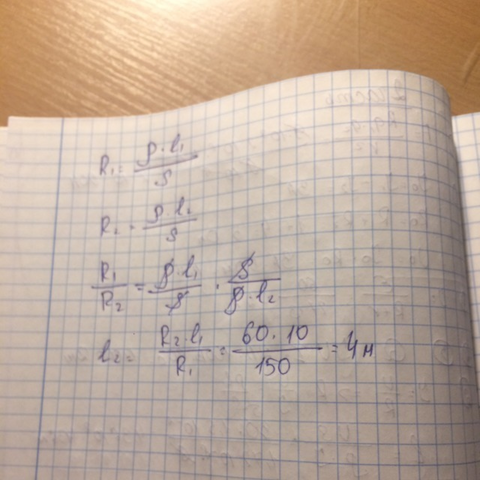 R₁ = ρ·l₁ / S
R₂ = ρ l₂ / S
R₁ / R₂ = ρ·l₁ / S · S / ρ·l₂
l₂ = R₂·l₁ / R₁ = 60·10 / 150 = 4м